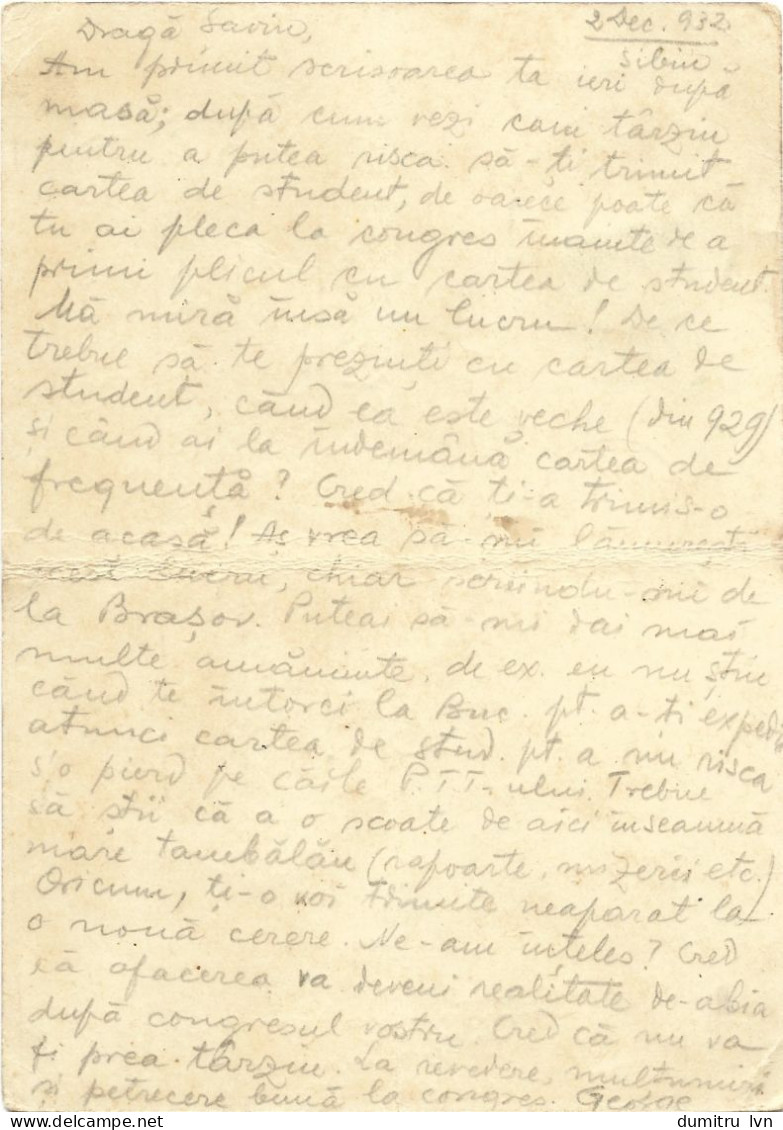 2 Dec. 932
Sibiu
Dragă Savin,
Am primit scrisoarea ta ieri după
masă; după cum vezi cam târziu
pentru a putea risca să-ți trimit
cartea de student, de oarece poate că
tu ai pleca la congres înainte de a
primi plicul cu cartea de student.
Mă miră însă un lucru! De ce
trebue să te prezinți cu cartea de
student, când ea este veche (din 929)
și când ai la îndemână cartea de
frequență? Cred că ți-a trimis-o
de acasă! Aș vrea să-mi lămurești
acest lucru, chiar scriindu-mi de
la Brașov. Puteai să-mi dai mai
multe amăninte, de ex. eu nu știu
când te întorci la Buc. pt. a-ti expedia
atunci cartea de stud. pt. a nu risca
s'o pierd pe căile P.T.T.-ului. Trebue
să știi că a o scoate de aici înseamnă
mare tambălău (rapoarte, mizerii etc.)
Oricum, ți-o voi trimite neaparat la
o nouă cerere. Ne-am înțeles? Cred
că afacerea va deveni realitate de-abia
după congresul vostru. Cred că nu va
fi prea târziu. La revedere, multumiri
și petrecere bună la congres. George
dumitru lvn